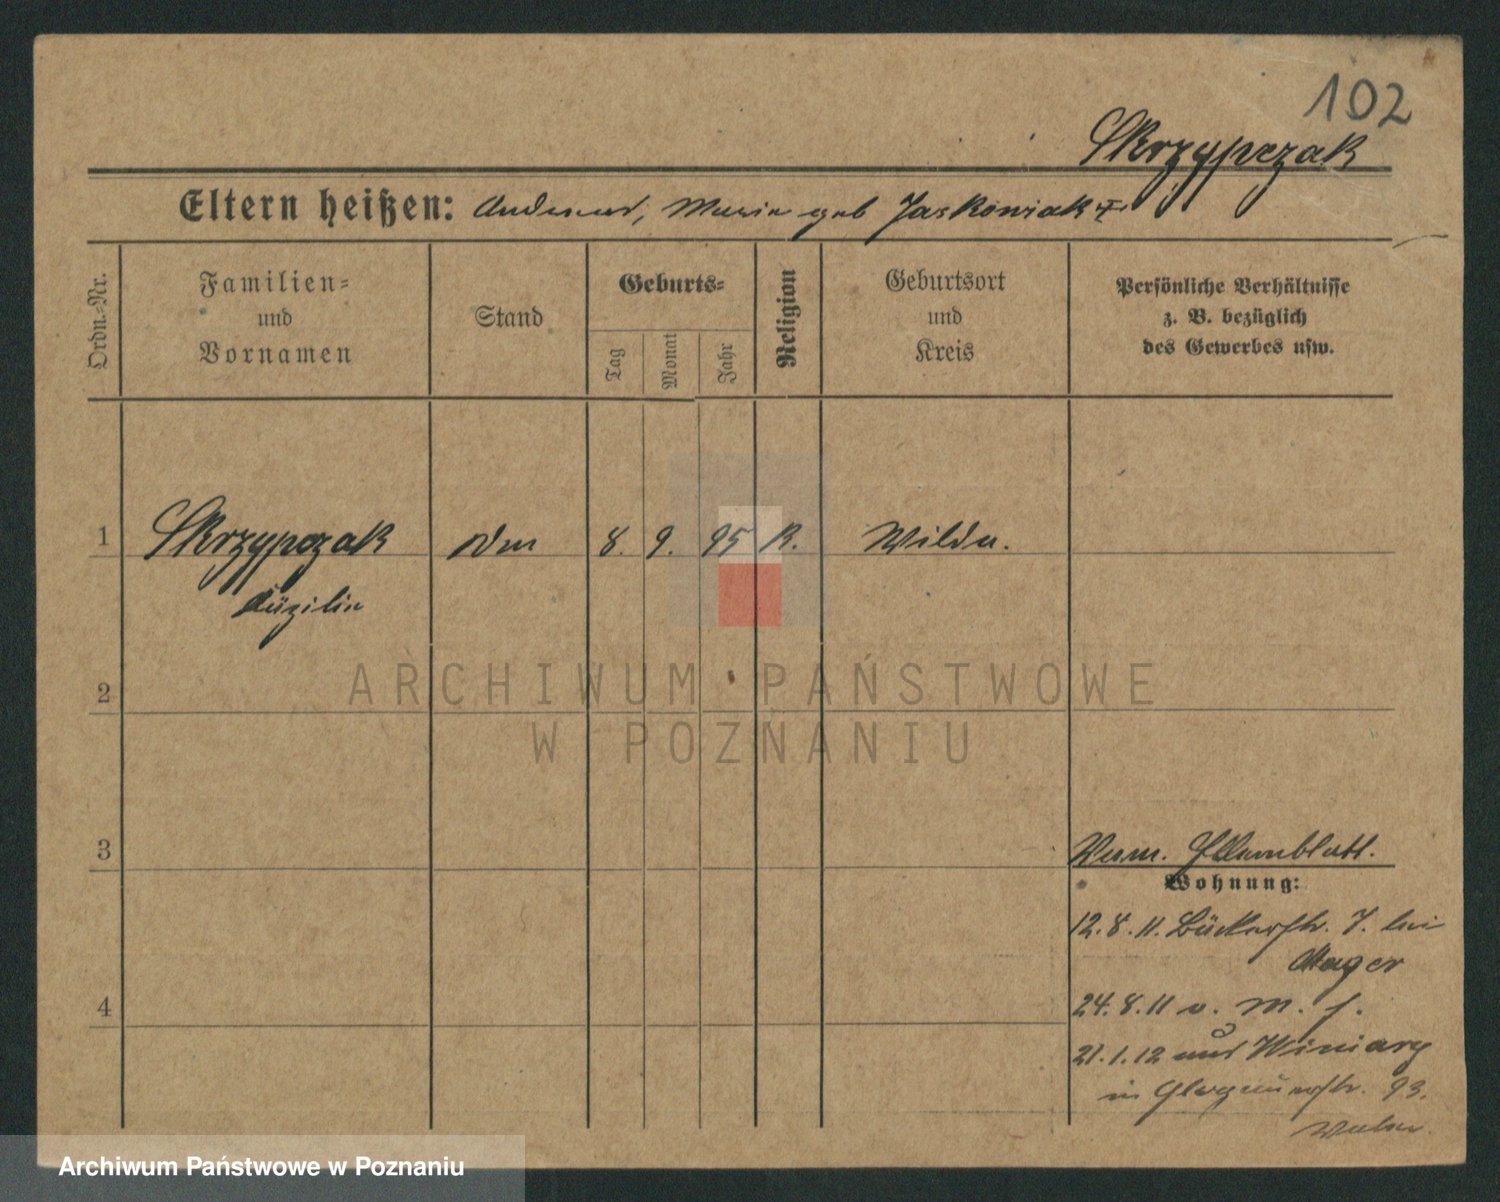 102
Skrzypczak
Eltern heißen: Andreas, Maria geb Jaskowiak
Ordn.-Nr.
Familien-
und
Vornamen
Stand
Geburts-
Tag
Monat
Jahr
Religion
Geburtsort
und
Kreis
Persönliche Verhältnisse
z. B. bezüglich
des Gewerbes usw.
1
Skrzypczak
8. 9. 95 K.
Wilda.
Cäzilie
ARCHIWUM PAŃSTWOWE
W POZNANIU
2
3
Wohnung:
12.8.11. Bäckerstr. 7. bei
Mayer
4
24.8.11 v. M.
21.1.12 aus Winiary
in Glogauerstr. 93.
Archiwum Państwowe w Poznaniu